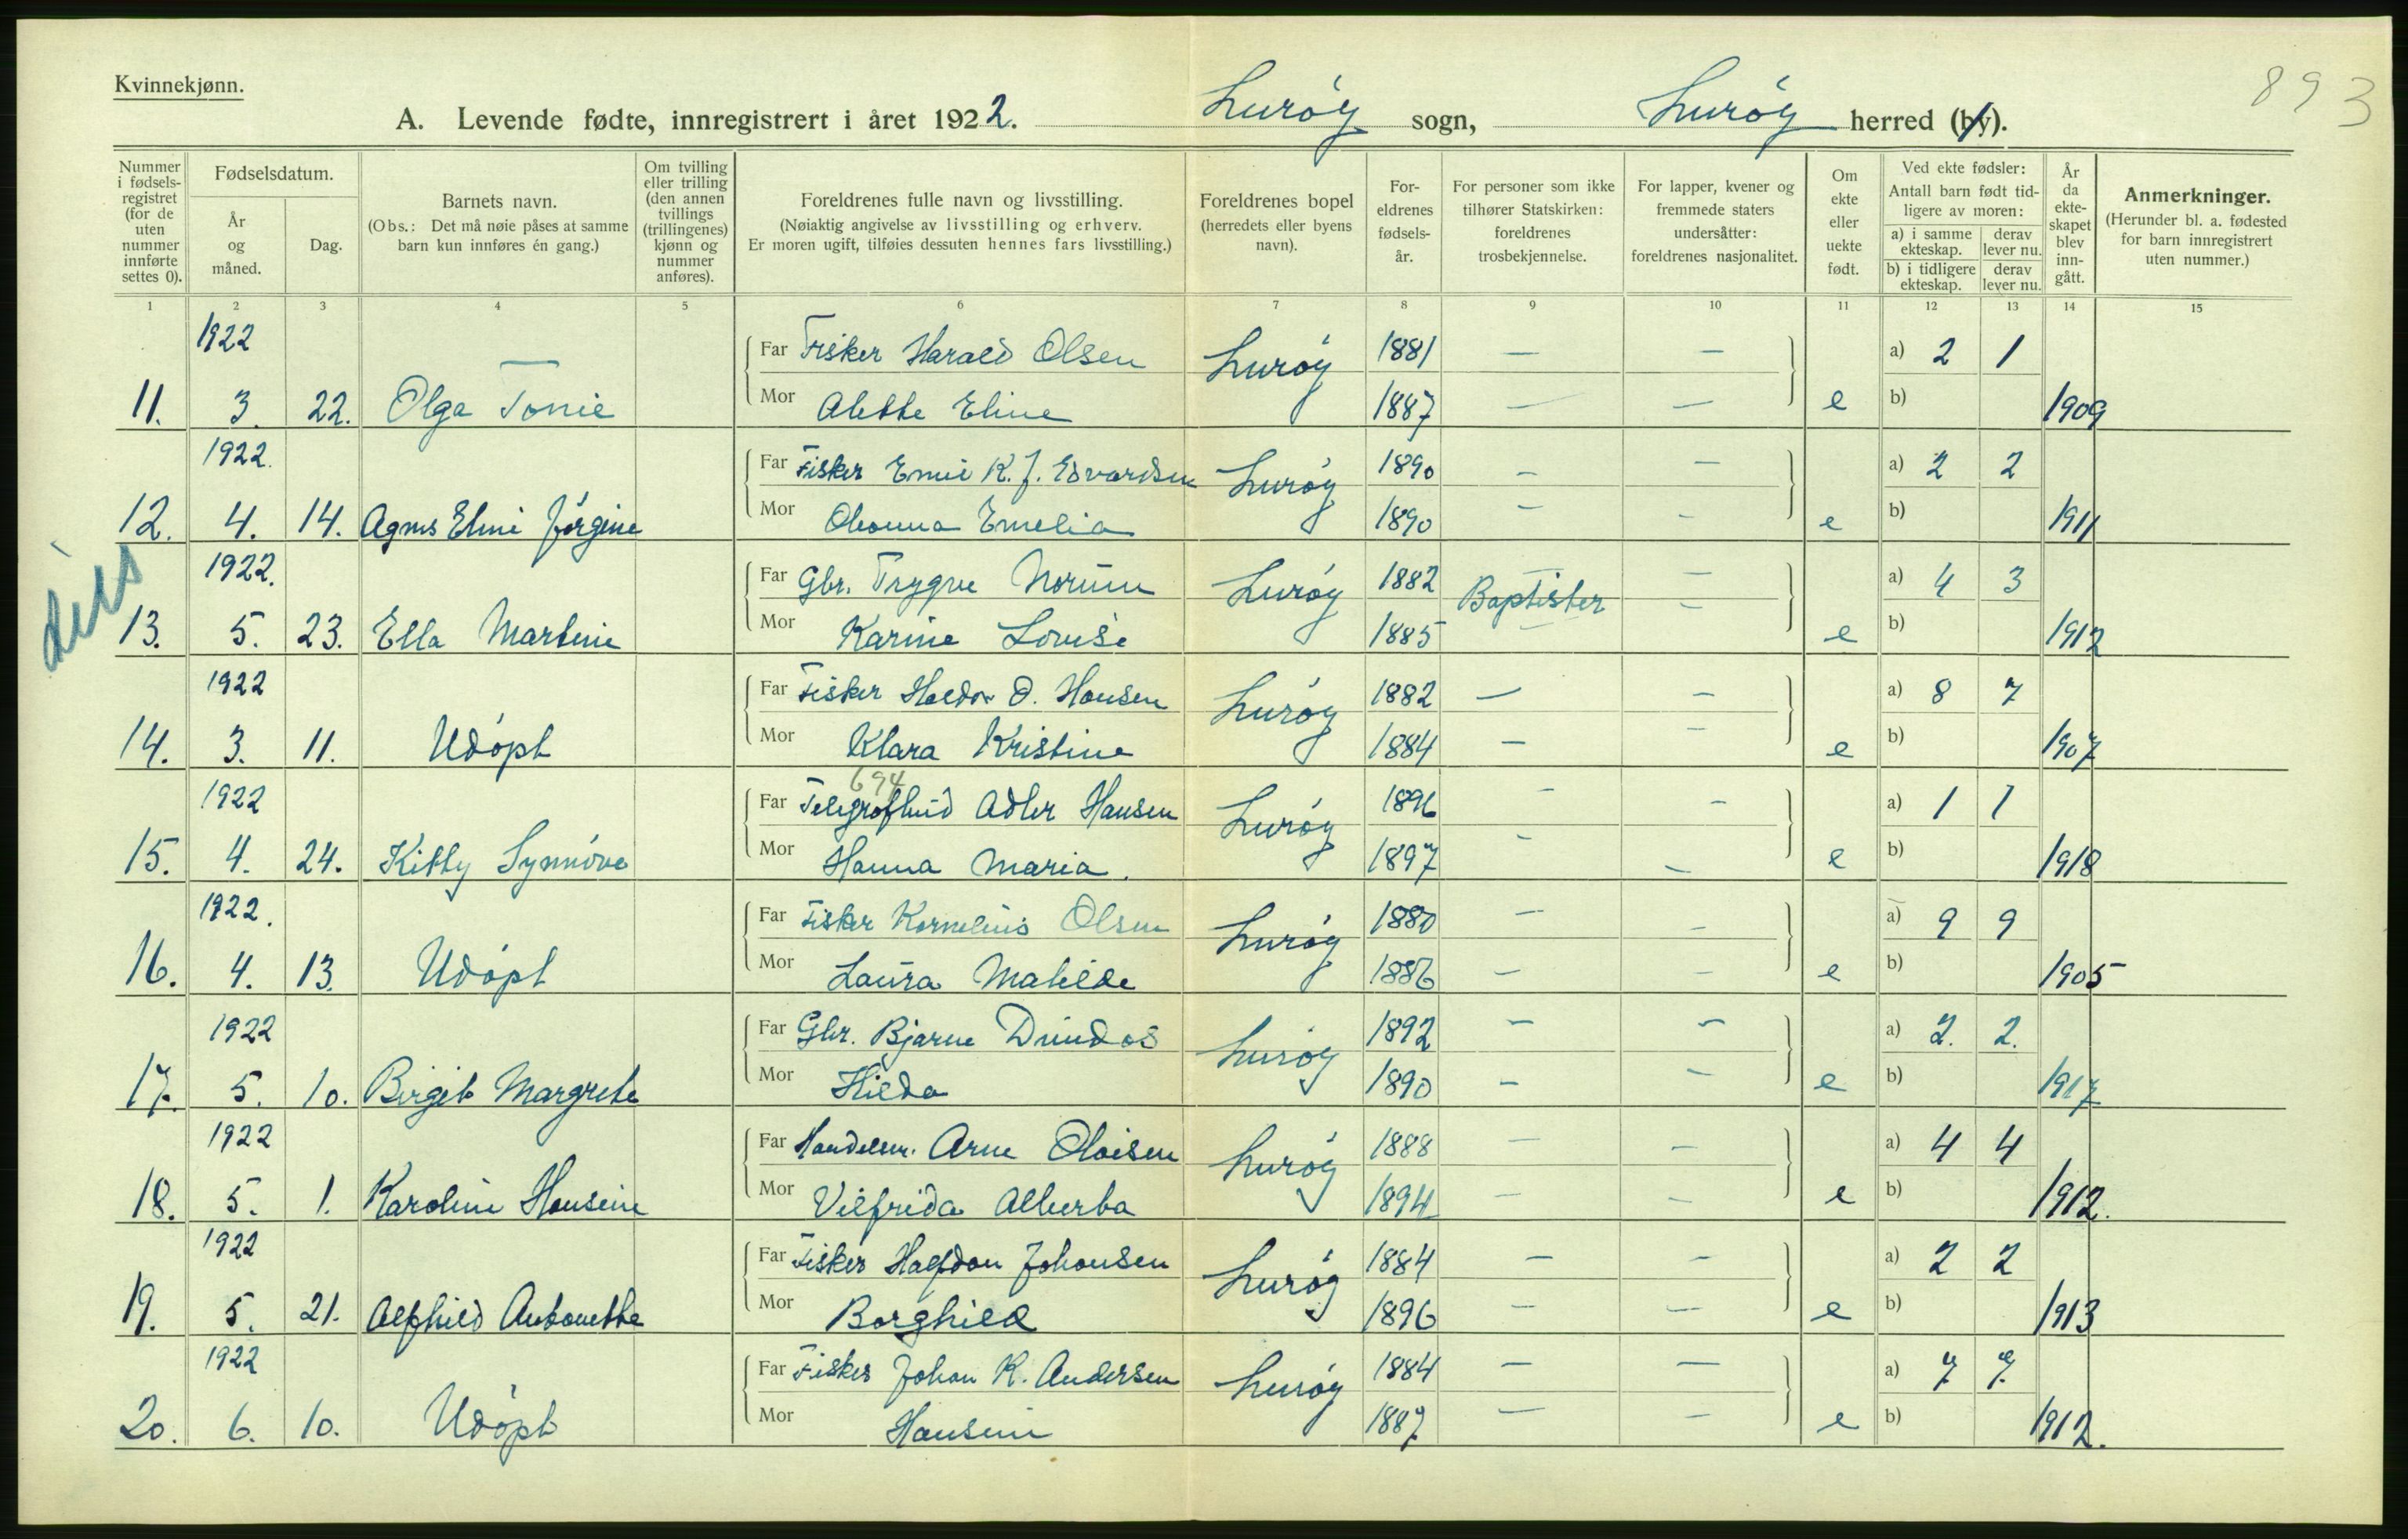 893
Kvinnekjønn.
A. Levende fødte, innregistrert i året 1922. Lurøy sogn, Lurøy herred (by).
Nummer i fødselsregistret (for de uten nummer innførte settes 0).
Fødselsdatum.
År og måned.
Dag.
Barnets navn.
(Obs.: Det må nøie påses at samme barn kun innføres én gang.)
Om tvilling eller trilling (den annen tvillings (trillingenes) kjønn og nummer anføres).
Foreldrenes fulle navn og livsstilling.
(Nøiaktig angivelse av livsstilling og erhverv. Er moren ugift, tilføies dessuten hennes fars livsstilling.)
Foreldrenes bopel (herredets eller byens navn).
Foreldrenes fødselsår.
For personer som ikke tilhører Statskirken: foreldrenes trosbekjennelse.
For lapper, kvener og fremmede staters undersåtter: foreldrenes nasjonalitet.
Om ekte eller uekte født.
Ved ekte fødsler: Antall barn født tidligere av moren:
a) i samme ekteskap. derav lever nu.
b) i tidligere ekteskap. derav lever nu.
År da ekteskapet blev inngått.
Anmerkninger.
(Herunder bl. a. fødested for barn innregistrert uten nummer.)
1 2 3 4 5 6 7 8 9 10 11 12 13 14 15
1922 Far Fisker Harald Olsen Lurøy 1881 — — a) 2 1
11. 3. 22. Olga Tonie Mor Alette Eline 1887 — — e b) 1909
1922. Far Fisker Emil K. J. Edvardsen Lurøy 1890 — — a) 2 2
12. 4. 14. Agnes Elini Jørgine Mor Olianna Emelia 1890 — — e b) 1911
1922. Far Gbr. Trygve Norum Lurøy 1882 Baptister — a) 4 3
13. 5. 23. Ella Martine Mor Karine Lovise 1885 — e b) 1912
1922 Far Fisker Haldor O. Hansen Lurøy 1882 — — a) 8 7
14. 3. 11. Udøpt Mor Klara Kristine 1884 — — e b) 1907
694
1922 Far Telegrafbud Adler Hansen Lurøy 1896 — — a) 1 1
15. 4. 24. Kitty Synnøve Mor Hanna Maria. 1897 — — e b) 1918
1922. Far Fisker Kornelius Olsen Lurøy 1880 — — a) 9 9
16. 4. 13. Udøpt Mor Laura Matilde 1886 — — e b) 1905
1922 Far Gbr. Bjarne Dundas Lurøy 1892 — — a) 2. 2.
17. 5. 10. Birgit Margrete Mor Hilda 1890 — — e b) 1917
1922 Far Handelsm. Arne Olaisen Lurøy 1888 — — a) 4 4
18. 5. 1. Karoline Hansine Mor Vilfrida Alberta 1894 — — e b) 1912.
1922 Far Fisker Halfdan Johansen Lurøy 1884 — — a) 2 2
19. 5. 21. Alfhild Antonette Mor Borghild 1896 — — e b) 1913
1922 Far Fisker Johan K. Andersen Lurøy 1884 — — a) 7 7.
20. 6. 10. Udøpt Mor Hansine 1887 — — e b) 1912.